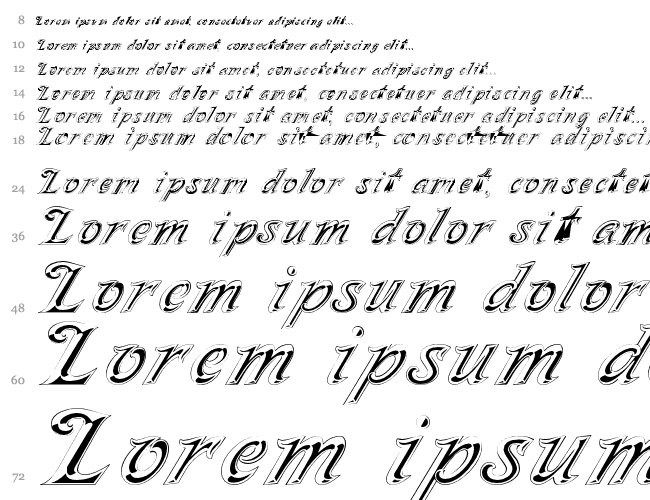 8 Lorem ipsum dolor sit amet, consectetuer adipiscing elit...
10 Lorem ipsum dolor sit amet, consectetuer adipiscing elit...
12 Lorem ipsum dolor sit amet, consectetuer adipiscing elit...
14 Lorem ipsum dolor sit amet, consectetuer adipiscing elit...
16 Lorem ipsum dolor sit amet, consectetuer adipiscing elit...
18 Lorem ipsum dolor sit amet, consectetuer adipisci
24 Lorem ipsum dolor sit amet, consectet
36 Lorem ipsum dolor sit am
48 Lorem ipsum dolor
60 Lorem ipsum d
72 Lorem ipsum